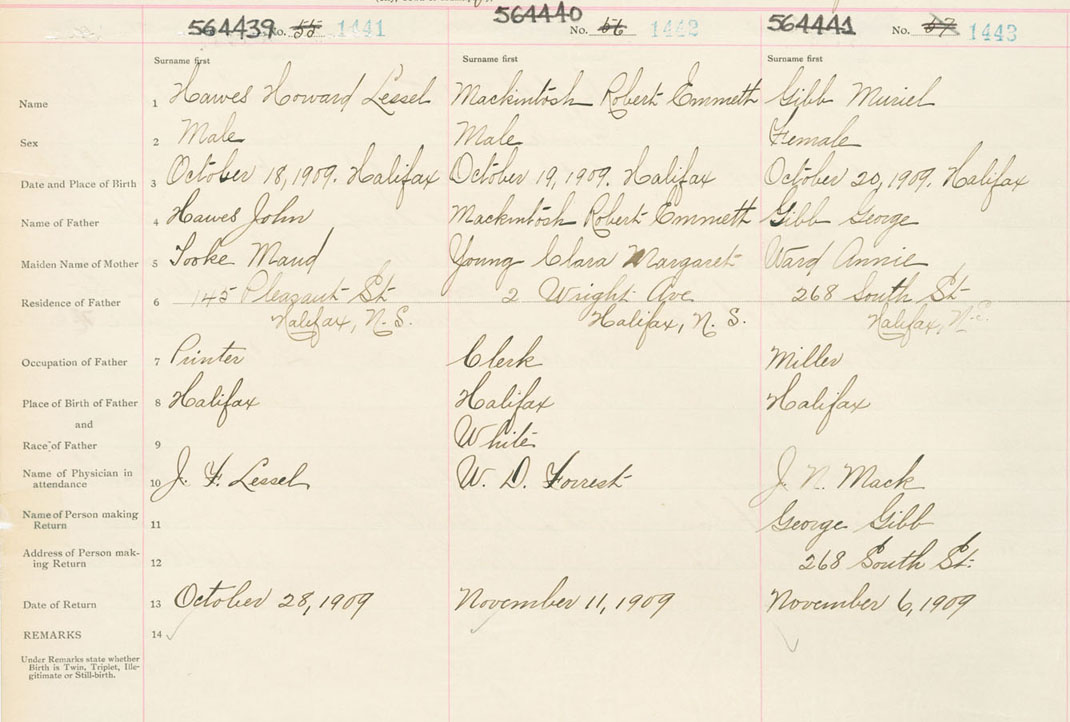 564439 No. 55 1441
564440 No. 56 1442
564441 No. 57 1443
Surname first Surname first Surname first
Name 1 Hawes Howard Lessel Mackintosh Robert Emmeth Gibb Muriel
Sex 2 Male Male Female
Date and Place of Birth 3 October 18, 1909. Halifax October 19, 1909. Halifax October 20, 1909. Halifax
Name of Father 4 Hawes John Mackintosh Robert Emmeth Gibb George
Maiden Name of Mother 5 Tooke Maud Young Clara Margaret Ward Annie
Residence of Father 6 145 Pleasant St 2 Wright Ave 268 South St
Halifax, N. S. Halifax, N. S. Halifax, N.S.
Occupation of Father 7 Printer Clerk Miller
Place of Birth of Father 8 Halifax Halifax Halifax
and
Race of Father 9 White
Name of Physician in
attendance 10 J. F. Lessel W. D. Forrest J. N. Mack
Name of Person making
Return 11 George Gibb
Address of Person mak-
ing Return 12 268 South St.
Date of Return 13 October 28, 1909 November 11, 1909 November 6, 1909
REMARKS 14
Under Remarks state whether
Birth is Twin, Triplet, Ille-
gitimate or Still-birth.